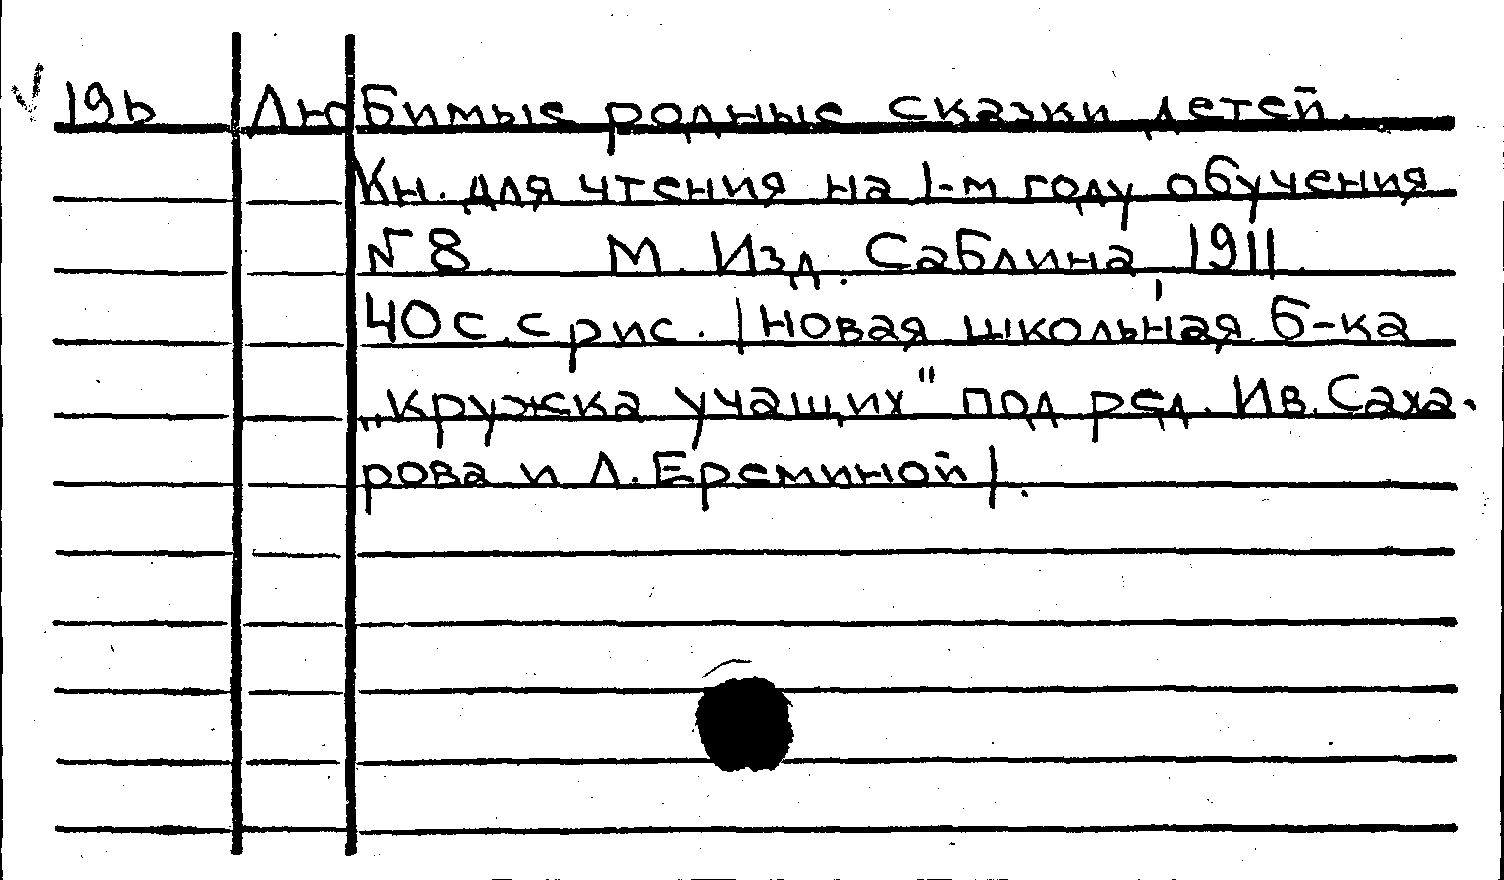 19ь Любимые родные сказки детей.
Кн. для чтения на 1-м году обучения
№ 8 М. Изд. Саблина, 1911.
40 с. с рис. /Новая школьная б-ка
„кружка учащих" под ред. Ив. Саха-
рова и Л. Ереминой/.